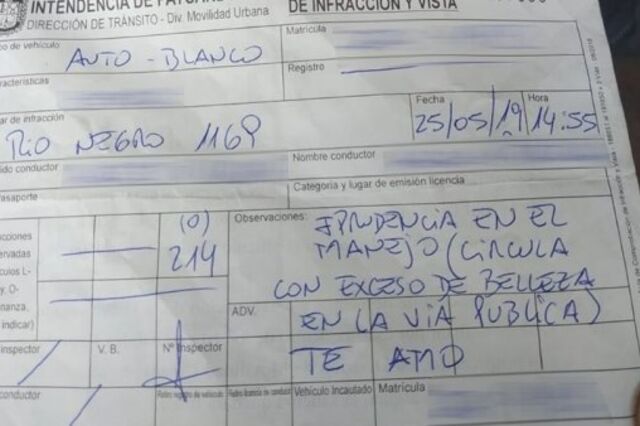 INTENDENCIA DE
DE INFRACCIÓN Y VISTA
DIRECCIÓN DE TRÁNSITO - Div. Movilidad Urbana
po de vehículo
AUTO - BLANCO
Matrícula
Registro
racterísticas
ar de infracción
RIO NEGRO 1169
Fecha
25/05/19
Hora
14:55
ido conductor
Nombre conductor
asaporte
Categoria y lugar de emisión licencia
cciones
ervadas
culos L-
y, O-
nanza,
indicar)
(0)
214
Observaciones:
IPRUDENCIA EN EL
MANEJO (CIRCULA
CON EXCESO DE BELLEZA
EN LA VIA PUBLICA)
ADV.
TE AMO
inspector
V. B.
Nº Inspector
conductor
Retiro registro de vehículo
Retiro licencia de conducir
Vehículo Incautado
Matrícula